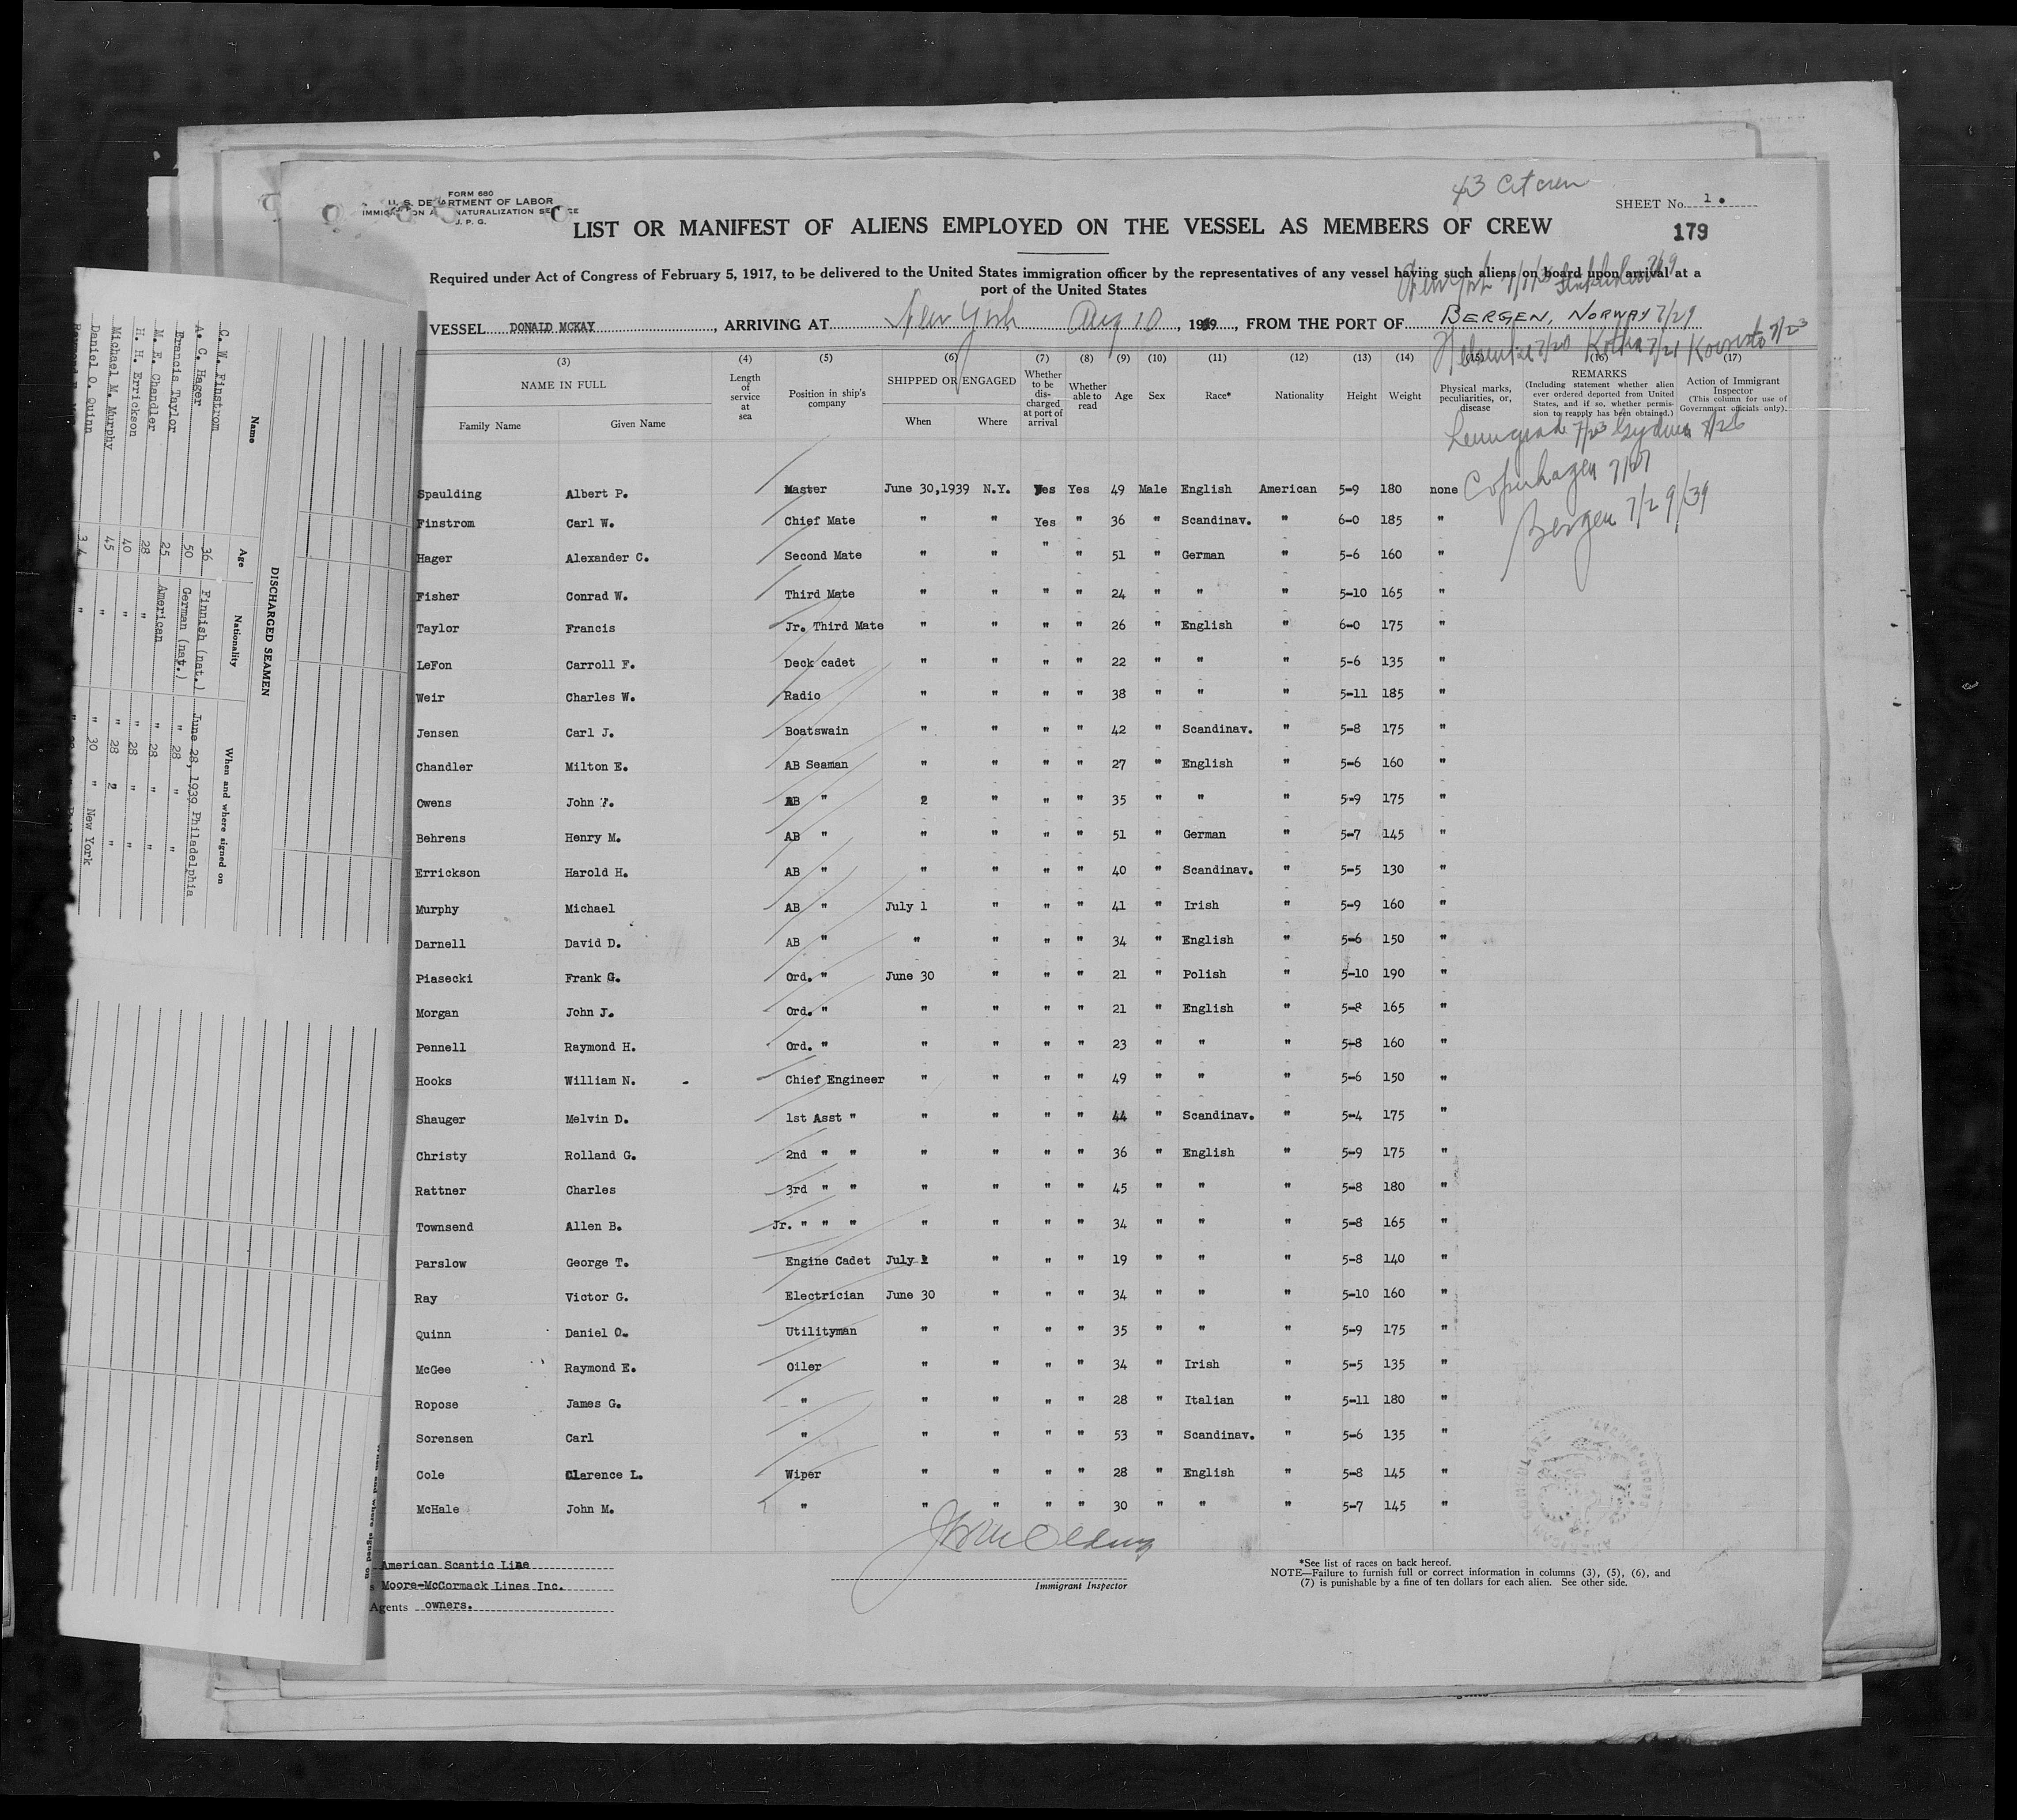 43 Cit crew
FORM 680
U. S. DEPARTMENT OF LABOR
IMMIGRATION AND NATURALIZATION SERVICE
J. P. G.
SHEET No. 1.
LIST OR MANIFEST OF ALIENS EMPLOYED ON THE VESSEL AS MEMBERS OF CREW
179
Required under Act of Congress of February 5, 1917, to be delivered to the United States immigration officer by the representatives of any vessel having such aliens on board upon arrival at a
port of the United States
New York 7/1/3
VESSEL DONALD MCKAY, ARRIVING AT New York Aug 10, 1939, FROM THE PORT OF BERGEN, NORWAY 7/29
Helsinki 7/20 Kotka 7/21 Koivisto 7/23
(3) (4) (5) (6) (7) (8) (9) (10) (11) (12) (13) (14) (15) (16) (17)
NAME IN FULL Length of service at sea Position in ship's company SHIPPED OR ENGAGED Whether to be discharged at port of arrival Whether able to read Age Sex Race* Nationality Height Weight Physical marks, peculiarities, or, disease REMARKS (Including statement whether alien ever ordered deported from United States, and if so, whether permission to reapply has been obtained.) Action of Immigrant Inspector (This column for use of Government officials only).
Family Name Given Name When Where
Leningrad 7/23 Gydnia 7/26
Copenhagen 7/27
Bergen 7/29/39
Spaulding Albert P. Master June 30,1939 N.Y. Yes Yes 49 Male English American 5-9 180 none
Finstrom Carl W. Chief Mate " " Yes " 36 " Scandinav. " 6-0 185 "
Hager Alexander C. Second Mate " " " " 51 " German " 5-6 160 "
Fisher Conrad W. Third Mate " " " " 24 " " " 5-10 165 "
Taylor Francis Jr. Third Mate " " " " 26 " English " 6-0 175 "
LeFon Carroll F. Deck cadet " " " " 22 " " " 5-6 135 "
Weir Charles W. Radio " " " " 38 " " " 5-11 185 "
Jensen Carl J. Boatswain " " " " 42 " Scandinav. " 5-8 175 "
Chandler Milton E. AB Seaman " " " " 27 " English " 5-6 160 "
Owens John F. AB " 2 " " " 35 " " " 5-9 175 "
Behrens Henry M. AB " " " " " 51 " German " 5-7 145 "
Errickson Harold H. AB " " " " " 40 " Scandinav. " 5-5 130 "
Murphy Michael AB " July 1 " " " 41 " Irish " 5-9 160 "
Darnell David D. AB " " " " " 34 " English " 5-6 150 "
Piasecki Frank G. Ord. " June 30 " " " 21 " Polish " 5-10 190 "
Morgan John J. Ord. " " " " " 21 " English " 5-8 165 "
Pennell Raymond H. Ord. " " " " " 23 " " " 5-8 160 "
Hooks William N. Chief Engineer " " " " 49 " " " 5-6 150 "
Shauger Melvin D. 1st Asst " " " " " 44 " Scandinav. " 5-4 175 "
Christy Rolland G. 2nd " " " " " " 36 " English " 5-9 175 "
Rattner Charles 3rd " " " " " " 45 " " " 5-8 180 "
Townsend Allen B. Jr. " " " " " " " 34 " " " 5-8 165 "
Parslow George T. Engine Cadet July 1 " " " 19 " " " 5-8 140 "
Ray Victor G. Electrician June 30 " " " 34 " " " 5-10 160 "
Quinn Daniel O. Utilityman " " " " 35 " " " 5-9 175 "
McGee Raymond E. Oiler " " " " 34 " Irish " 5-5 135 "
Ropose James G. " " " " " 28 " Italian " 5-11 180 "
Sorensen Carl " " " " " 53 " Scandinav. " 5-6 135 "
Cole Clarence L. Wiper " " " " 28 " English " 5-8 145 "
McHale John M. " " " " " 30 " " " 5-7 145 "
American Scantic Line
Moore-McCormack Lines Inc.
Agents owners.
Immigrant Inspector
*See list of races on back hereof.
NOTE—Failure to furnish full or correct information in columns (3), (5), (6), and
(7) is punishable by a fine of ten dollars for each alien. See other side.
DISCHARGED SEAMEN
Name Age Nationality When and where signed on
C. W. Finstrom 36 Finnish (nat.) June 28, 1939 Philadelphia
A. C. Hager 50 German (nat.) " 28 " "
Francis Taylor 25 American " 28 " "
M. E. Chandler 28 " " 28 " "
H. H. Errickson 40 " " 28 " "
Michael M. Murphy 45 " " 28 2 "
Daniel O. Quinn 34 " " 30 " New York